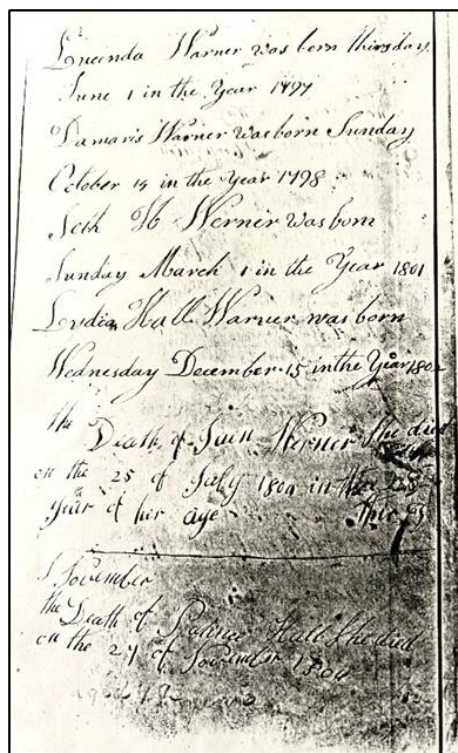 Lucinda Warner was born thirsday
June 1 in the Year 1797
Damaris Warner was born Sunday
October 14 in the Year 1798
Seth H Werner was born
Sunday March 1 in the Year 1801
Lydia Hall Warner was born
Wednesday December 15 in the Year 1802
the Death of Werner She died
on the 25 of July 1804 in the 28
Year of her age
November
the Death of Hall She died
on the 27 of November 1804